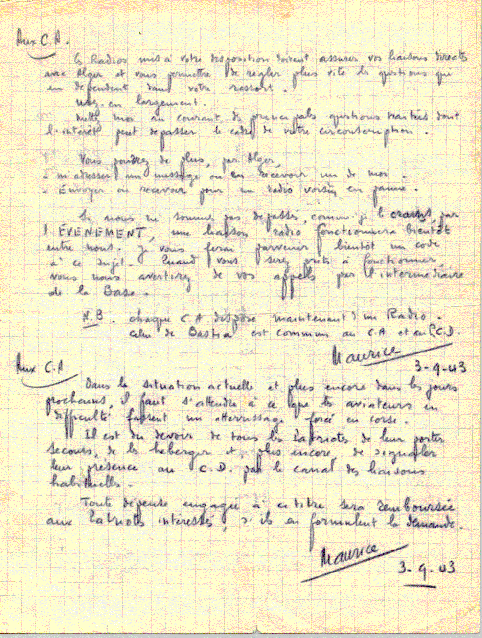 Aux C.A.
Les Radios mis à votre disposition doivent assurer vos liaisons directes
avec Alger et vous permettre de régler plus vite les questions qui
en dépendent dans votre ressort.
Usez-en largement.
Mettez moi au courant des principales questions traitées dont
l'intérêt peut dépasser le cadre de votre circonscription.
Vous pouvez de plus, par Alger,
- m'adresser un message ou en recevoir un de moi.
- Envoyer ou recevoir pour un radio voisin en panne.
Si nous ne sommes pas dépassés, comme je le crains, par
l'ÉVÉNEMENT, une liaison radio fonctionnera bientôt
entre nous. Je vous ferai parvenir bientôt un code
à ce sujet. Quand vous serez prêts à fonctionner,
vous nous avertirez de vos appels par l'intermédiaire
de la Base.
N.B. chaque C.A dispose maintenant d'un Radio.
celui de Bastia est commun au C.A et au C.D.
Maurice
3-9-43
Aux C.A
Dans la situation actuelle et plus encore dans les jours
prochains, il faut s'attendre à ce que les aviateurs en
difficulté fassent un atterrissage forcé en Corse.
Il est du devoir de tous les Patriotes de leur porter
secours, de les héberger et, plus encore, de signaler
leur présence au C.D. par le canal des liaisons
habituelles.
Toute dépense engagée à ce titre sera remboursée
aux Patriotes intéressés, s'ils en formulent la demande.
Maurice
3-9-43